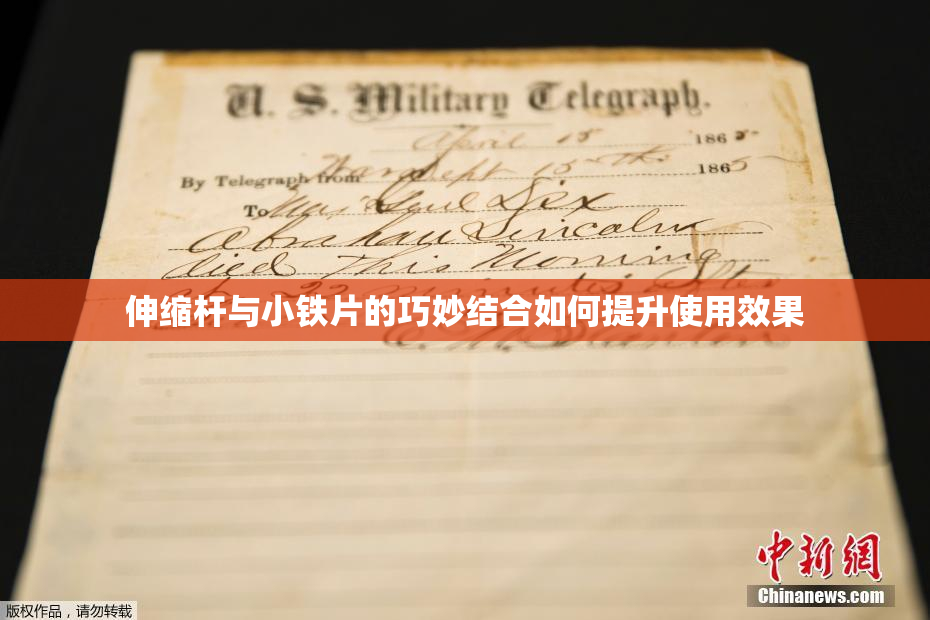 U. S. Military Telegraph.
April 15 1865
By Telegraph from War Dept 15th 1865
To Maj Genl Dix
Abraham Lincoln
died This Morning
at 22 minutes after
伸缩杆与小铁片的巧妙结合如何提升使用效果
E. M. Stanton
中新網
Chinanews.com
版权作品，请勿转载